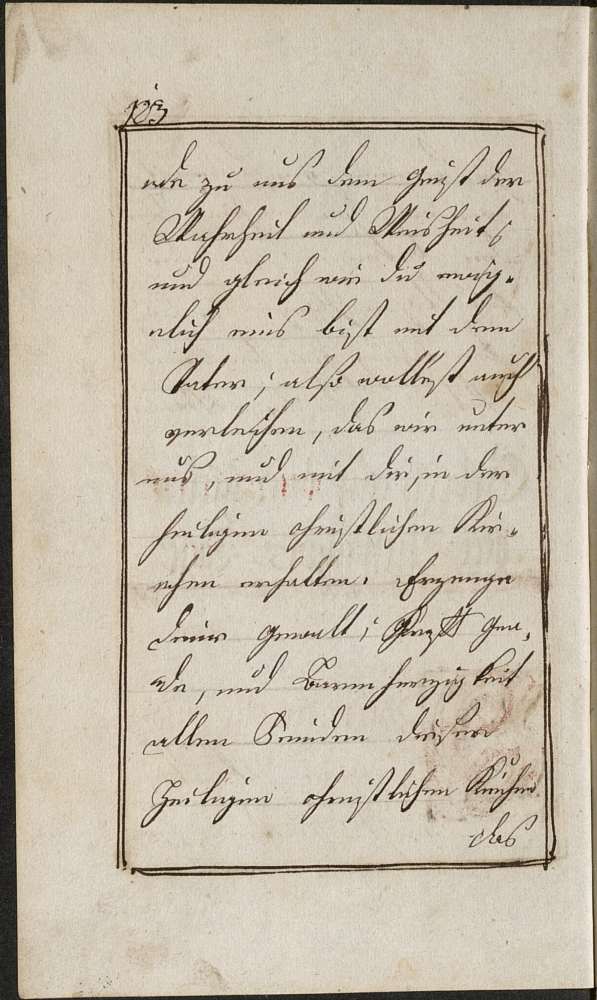 123
ade zu uns dem Geist der
Wahrheit und Weisheit;
und gleich wie du ewig-
lich eins bist mit dem
Vater; also wollest auch
verleichen, das wir unter
uns, und mit dir, in der
heiligen christlichen Kir-
chen erhalten. Erzeuge
deine gewalt; Gna-
de, und Barmherzigkeit
allen Feinden dieser
Heiligen christlichen Kirchen
das